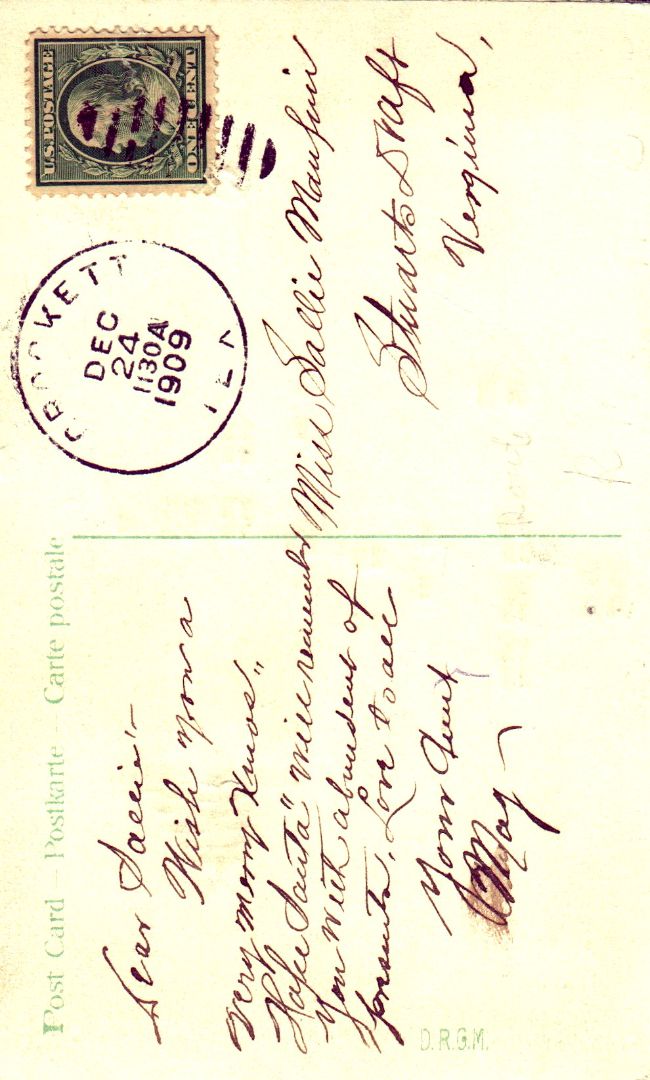 Post Card — Postkarte — Carte postale
U.S. POSTAGE
ONE CENT
CROCKETT
DEC
24
1130A
1909
Dear Sallie:—
Wish you a
very merry Xmas."
Hope Santa" will remember
you with abundent of
presents. Love to all
Your Aunt
May
Miss Sallie Manpin
Stuarts Draft
Verginia,
D.R.G.M.